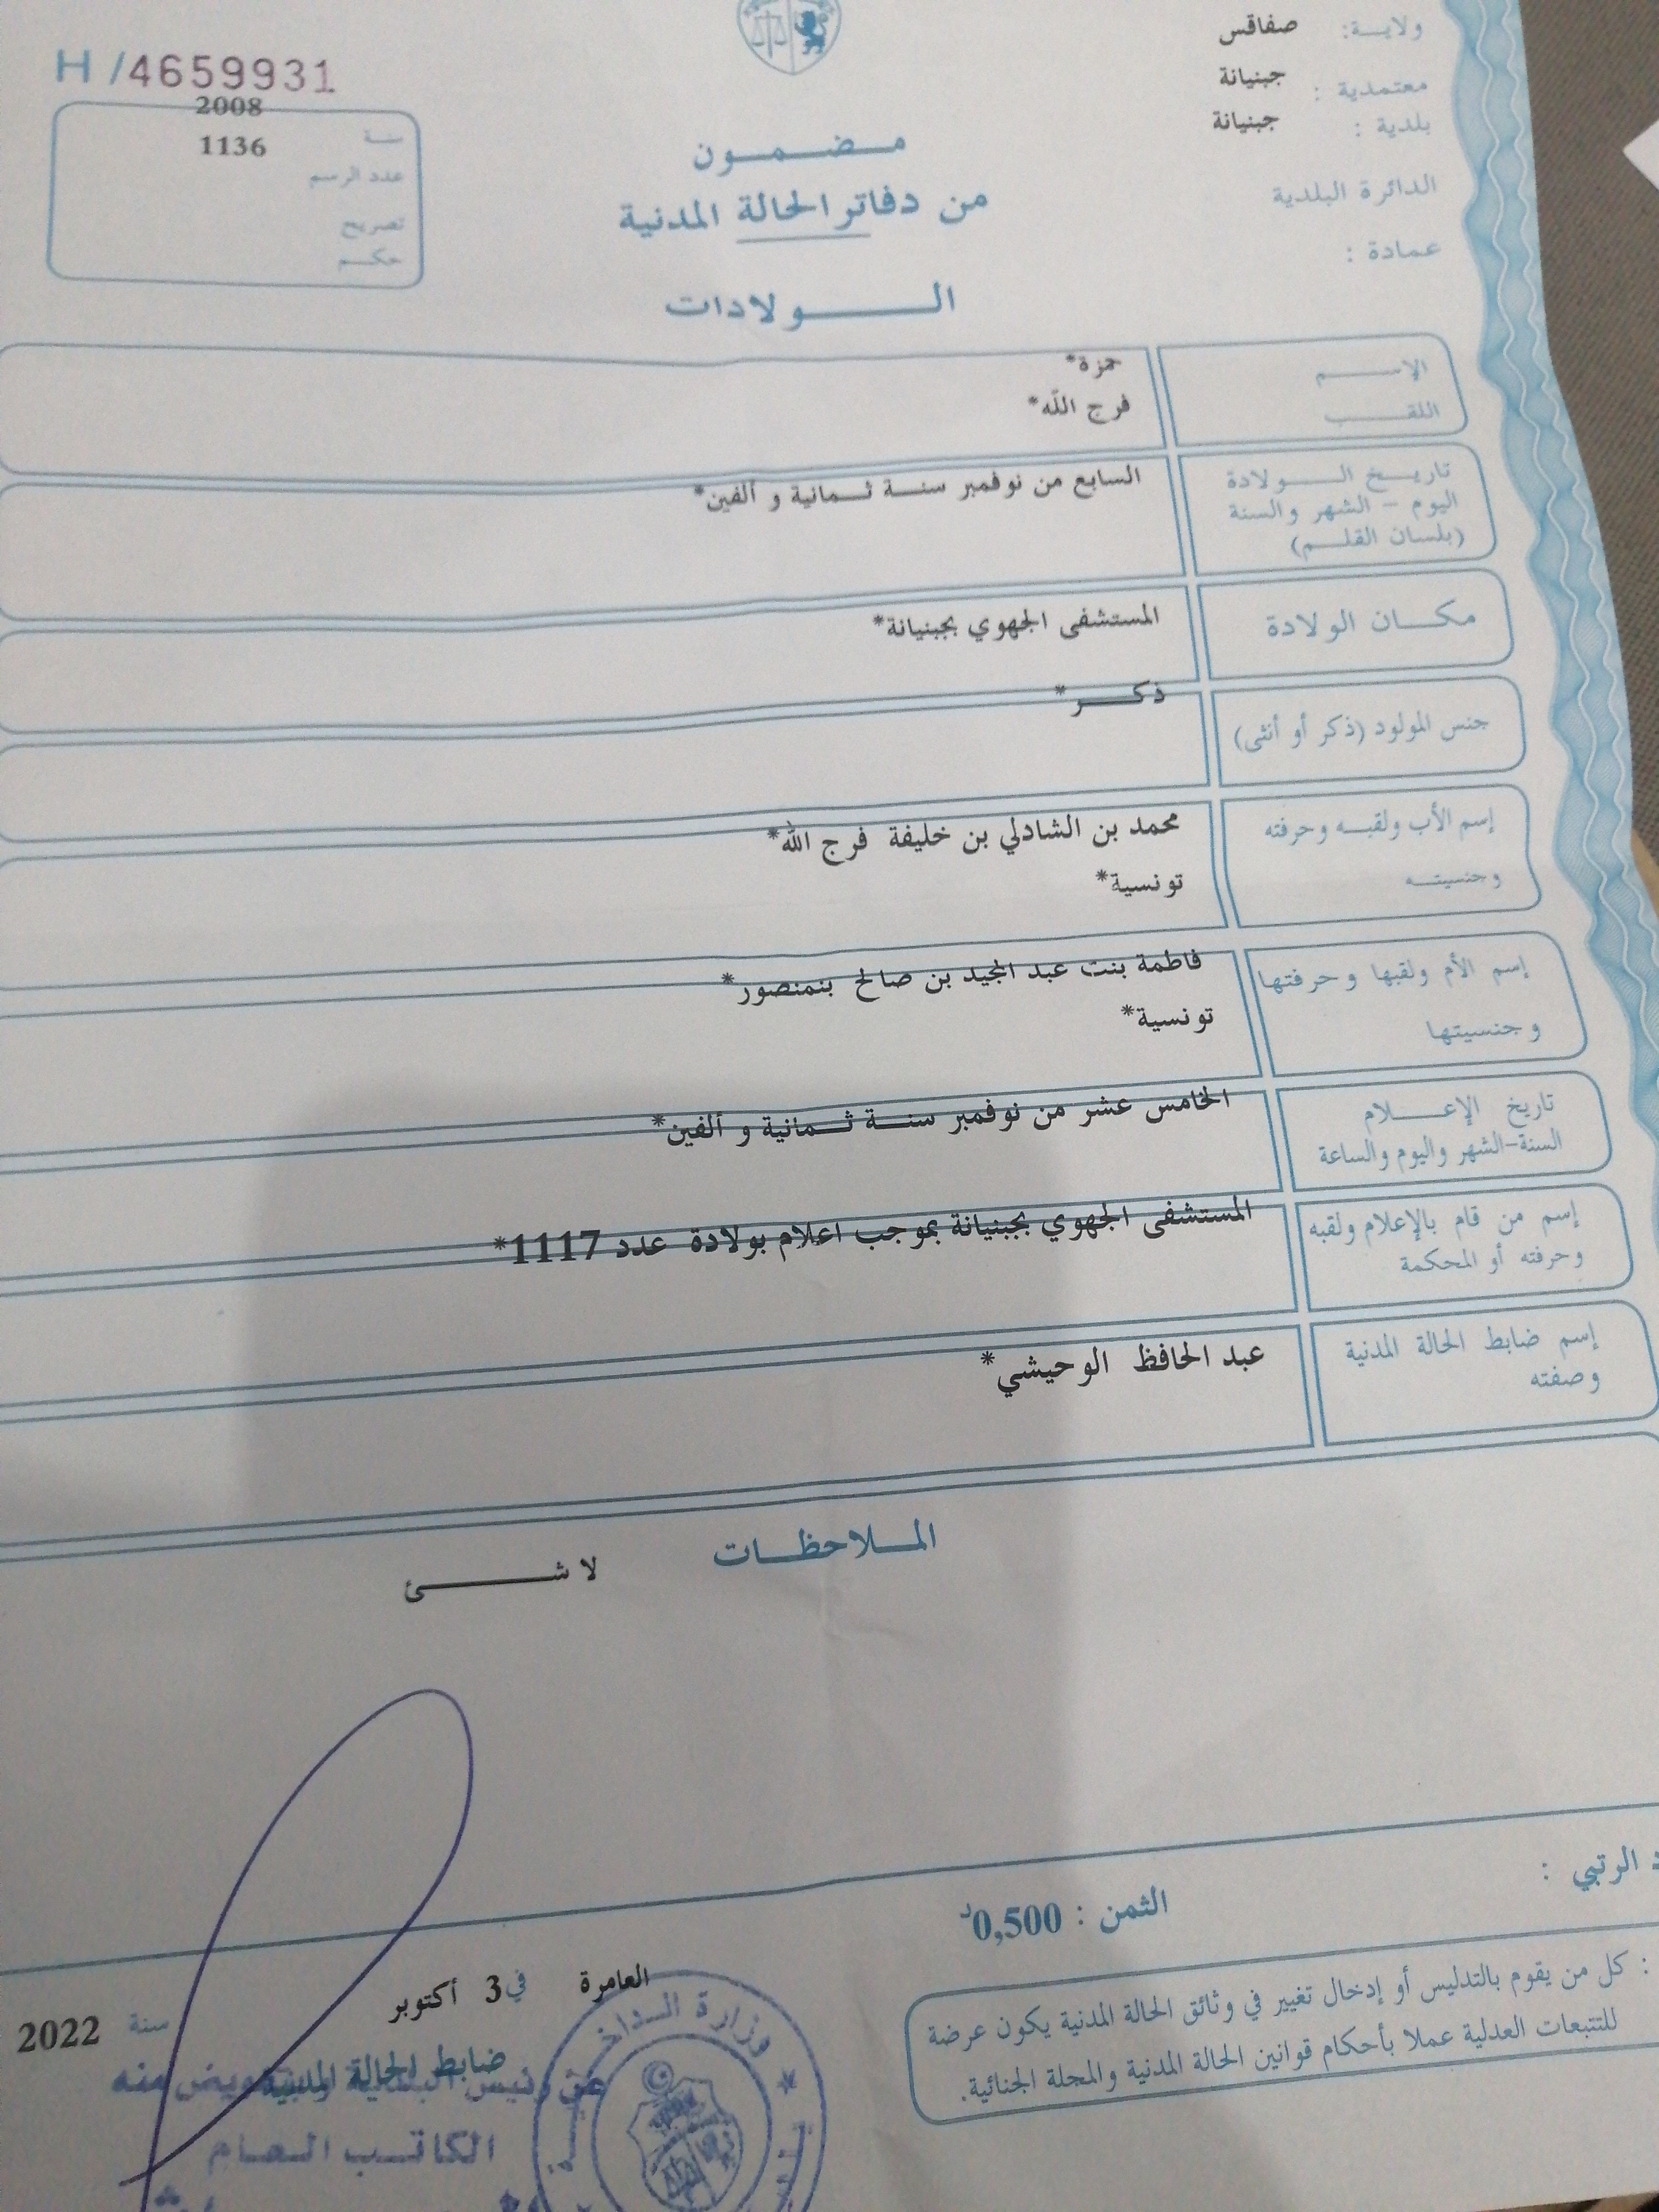 ولاية: صفاقس
معتمدية : جبنيانة
بلدية : جبنيانة
الدائرة البلدية
عمادة :
H /4659931
سنة 2008
عدد الرسم 1136
تصريح
حكم
مضمون
من دفاتر الحالة المدنية
الولادات
الاسم حمزة*
اللقب فرج الله*
تاريخ الولادة السابع من نوفمبر سنة ثمانية و ألفين*
اليوم - الشهر والسنة
(بلسان القلم)
مكان الولادة المستشفى الجهوي بجبنيانة*
جنس المولود (ذكر أو أنثى) ذكر*
إسم الأب ولقبه وحرفته محمد بن الشاذلي بن خليفة فرج الله*
وجنسيته تونسية*
إسم الأم ولقبها وحرفتها فاطمة بنت عبد المجيد بن صالح بنمنصور*
وجنسيتها تونسية*
تاريخ الإعلام الخامس عشر من نوفمبر سنة ثمانية و ألفين*
السنة-الشهر واليوم والساعة
إسم من قام بالإعلام ولقبه المستشفى الجهوي بجبنيانة بموجب اعلام بولادة عدد 1117*
وحرفته أو المحكمة
إسم ضابط الحالة المدنية عبد الحافظ الوحيشي*
وصفته
الملاحظات
لا شئ
الرتبي :
الثمن : 0,500د
: كل من يقوم بالتدليس أو إدخال تغيير في وثائق الحالة المدنية يكون عرضة
للتتبعات العدلية عملا بأحكام قوانين الحالة المدنية والمجلة الجنائية.
العامرة في 3 أكتوبر سنة 2022
ضابط الحالة المدنية
عن رئيس البلدية وبتفويض منه
الكاتب العام
وزارة الداخ